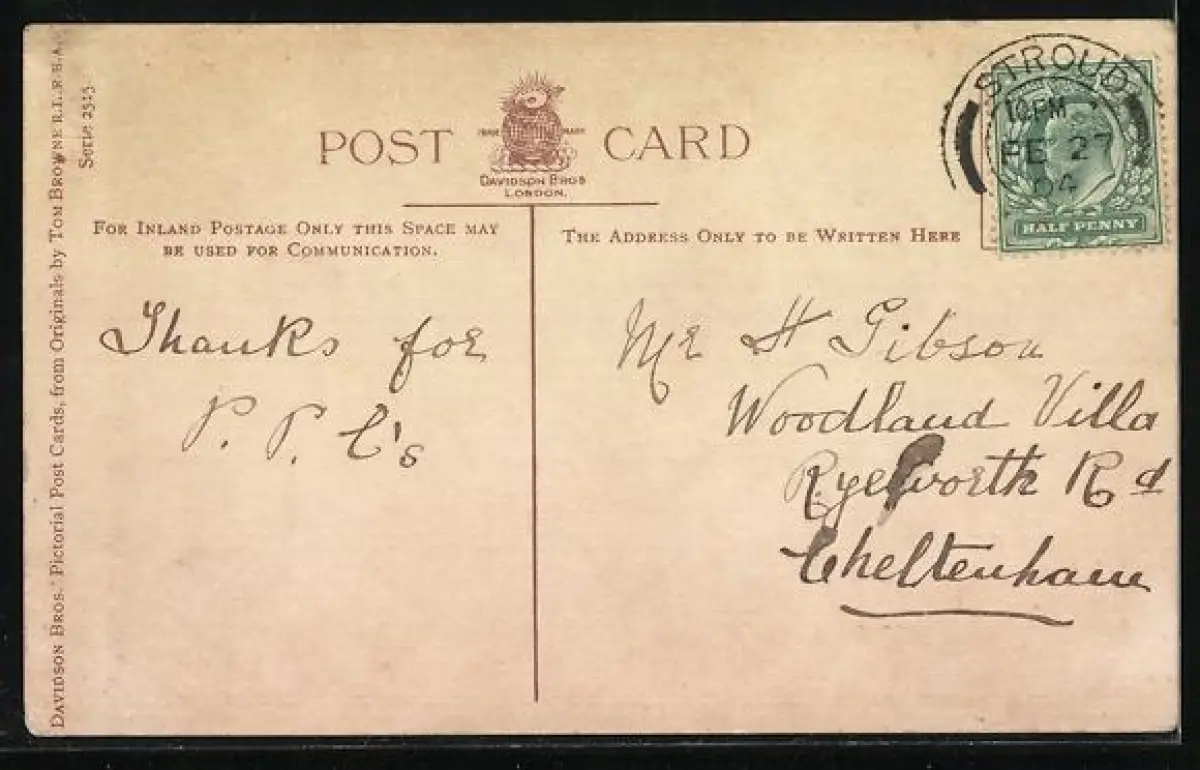 DAVIDSON BROS.' Pictorial Post Cards, from Originals by TOM BROWNE R.I., R.B.A.
Serie 2515.
POST CARD
TRADE MARK
DAVIDSON BROS
LONDON.
FOR INLAND POSTAGE ONLY THIS SPACE MAY
BE USED FOR COMMUNICATION.
THE ADDRESS ONLY TO BE WRITTEN HERE
STROUD
10.PM
FE 27
04
HALF PENNY
Thanks for
P. P. C's
Mr H Gibson
Woodland Villa
Ryeworth Rd
Cheltenham